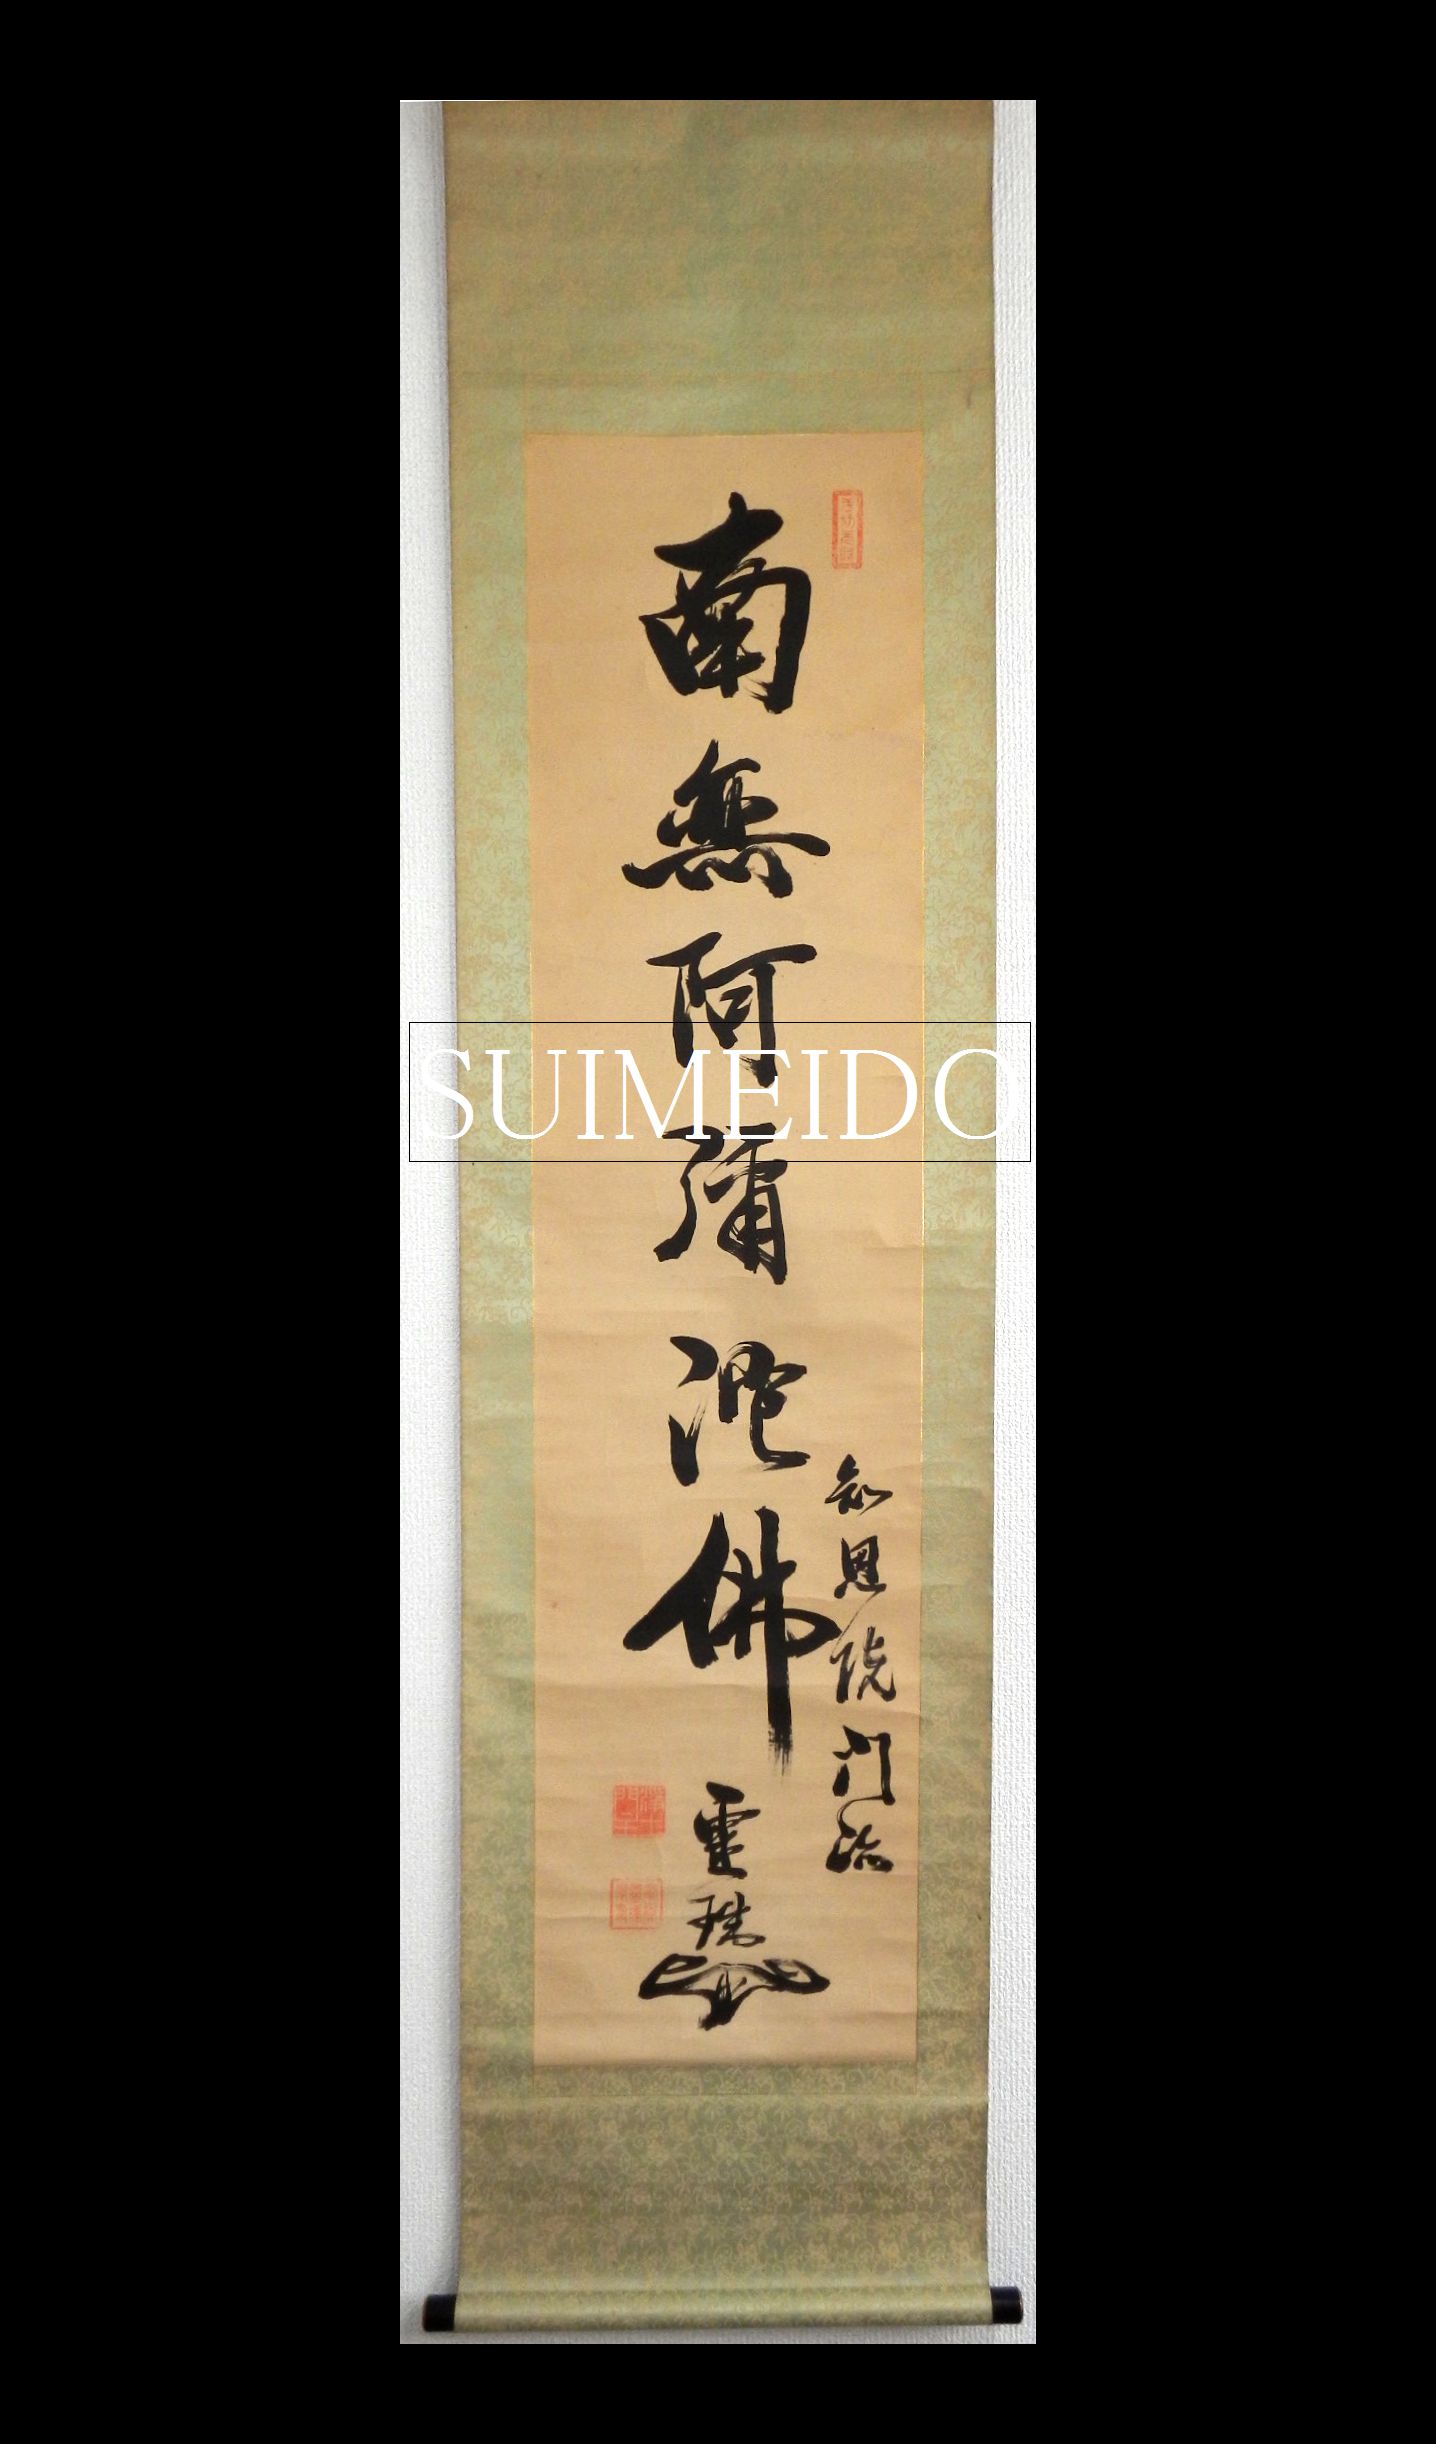 南無阿彌陀佛
知恩院門跡
霊瑞
SUIMEIDO